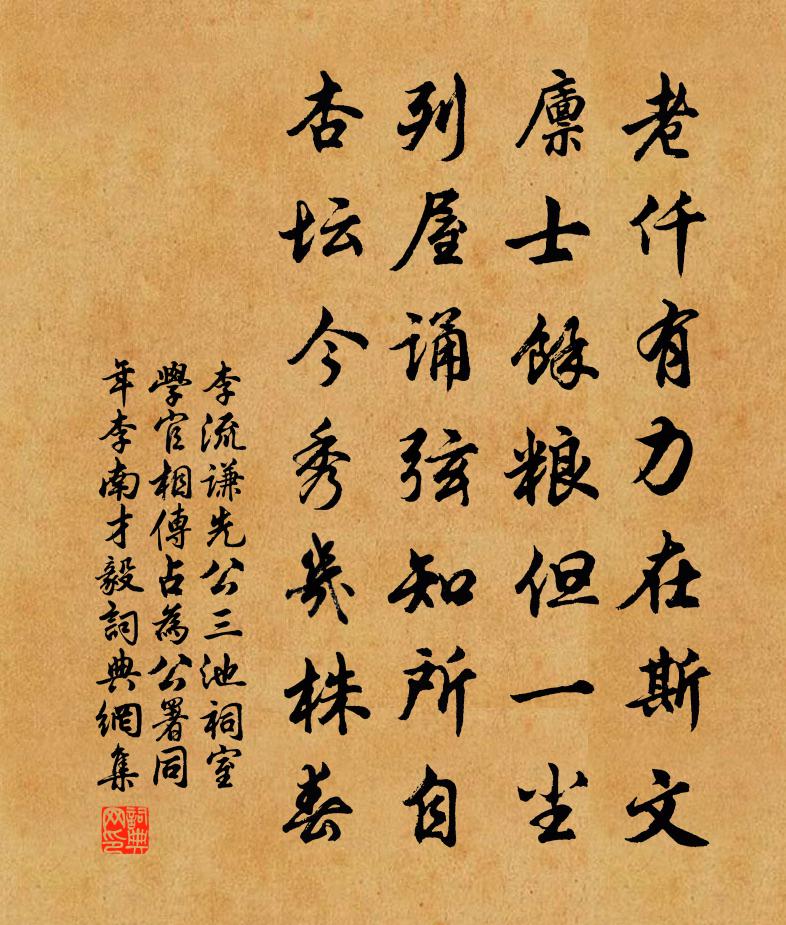 老仟有力在斯文
廪士餘粮但一尘
列屋诵弦知所自
杏坛今秀幾株春
李流谦先公三池祠室
學官相傳占為公署同
年李南才毅詞典網集
詞典网印